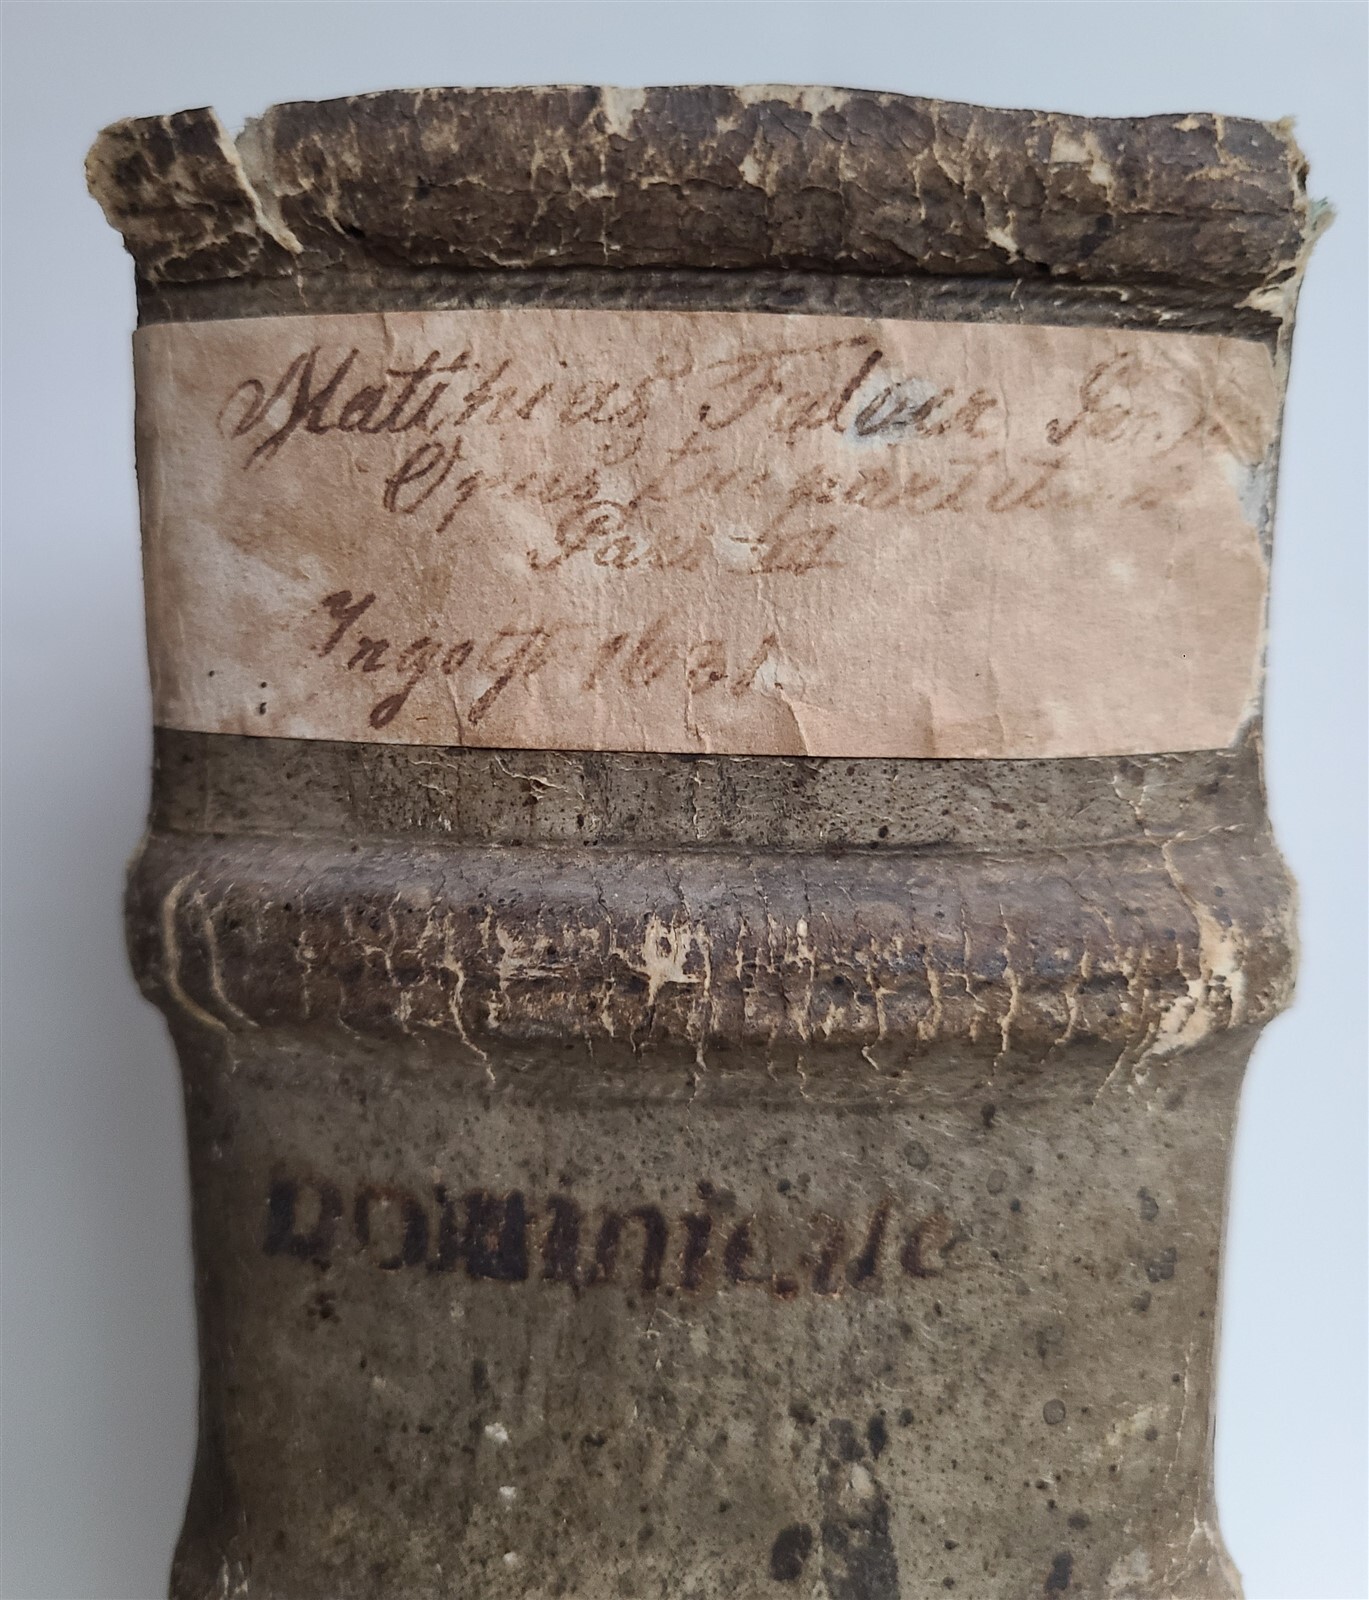 Matthias Faber
Opus tripartitum
Pars II
Ingolst 1631.
DOMINICAE